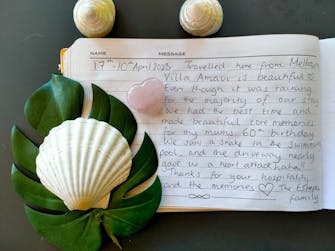 NAME MESSAGE
17th - 10th April 2023 Travelled here from
Villa Amavi is beautiful
Even though it was raining
for the majority of our stay
We had the best time and
made beautiful core memories
for my mums 60th birthday
We saw a snake in the swimming
pool, and the driveway nearly
gave us a heart attack haha!
Thanks for your hospitality
and the memories ♡ The
family